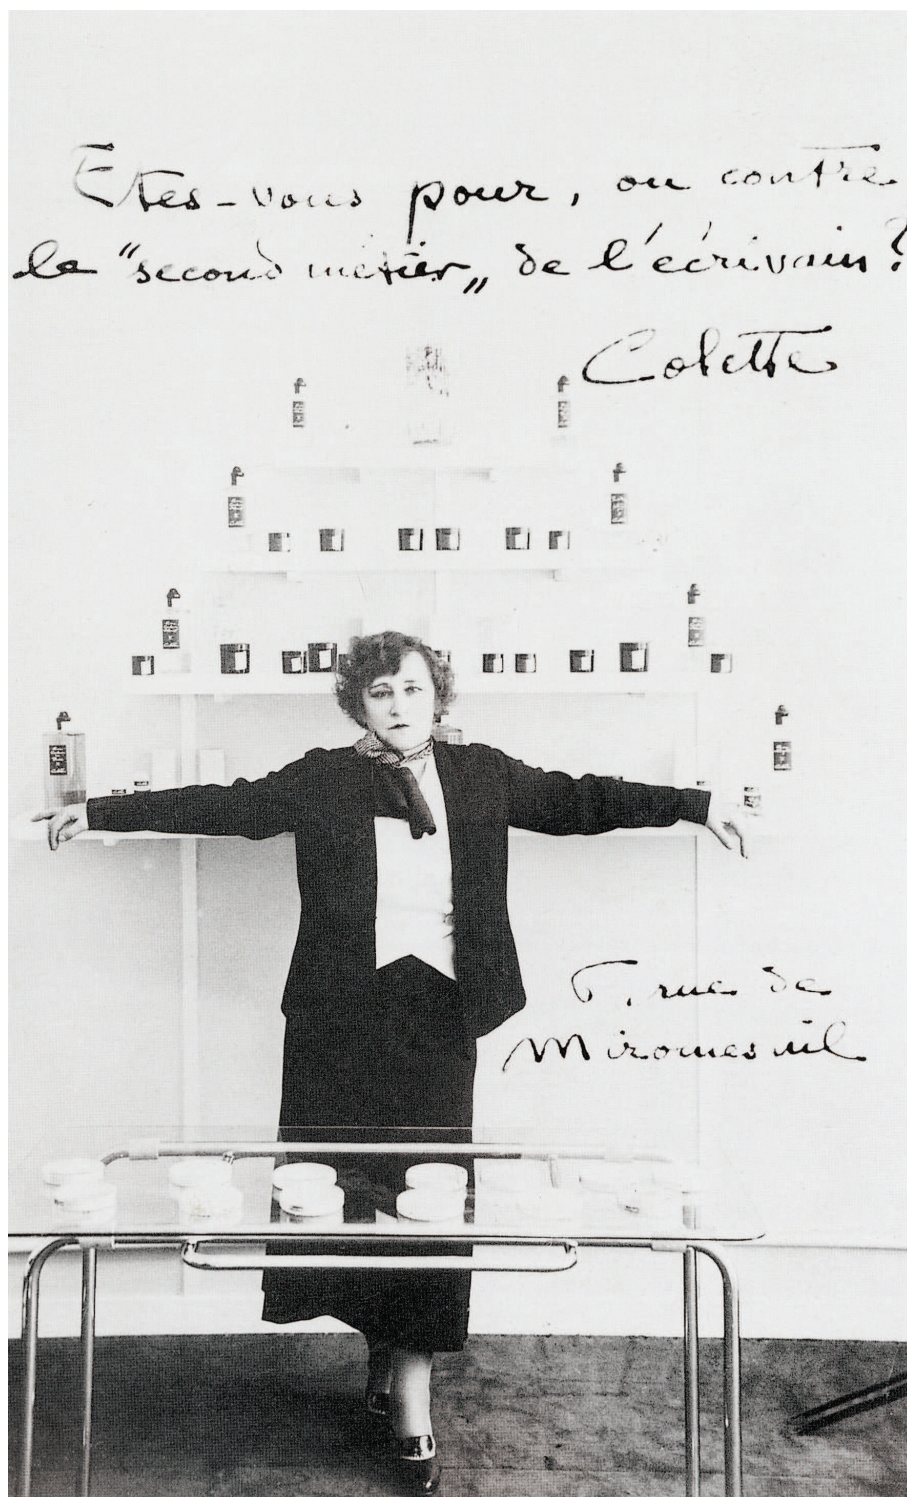 Etes-vous pour, ou contre
le "second métier„ de l'écrivain?
Colette
6, rue de
Miromesnil